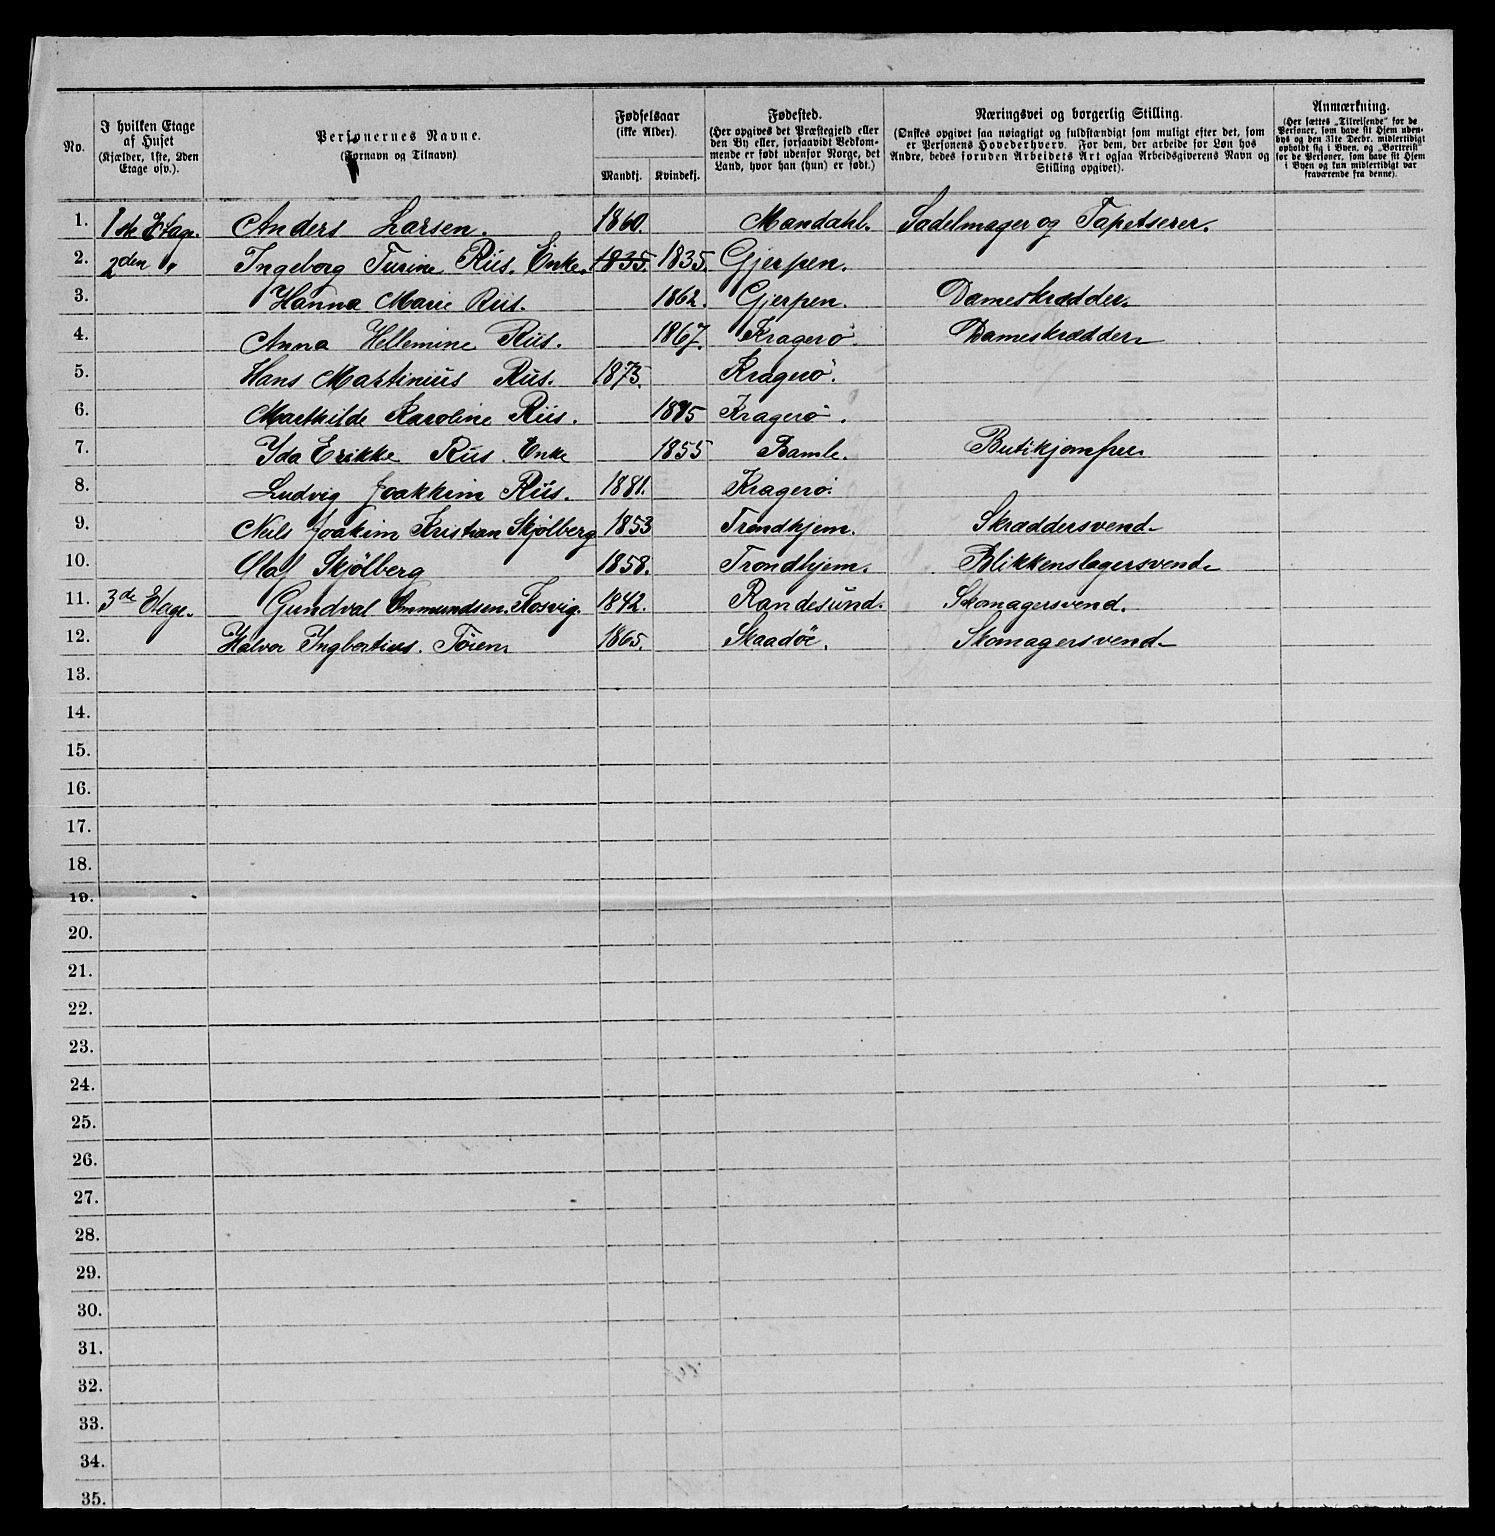 No. | I hvilken Etage af Huset (Kjælder, 1ste, 2den Etage osv.). | Personernes Navne. (Fornavn og Tilnavn) | Fødselsaar (ikke Alder) Mandkj. | Kvindekj. | Fødested. (Her opgives det Præstegjeld eller den By eller, forsaavidt Vedkommende er født udenfor Norge, det Land, hvor han (hun) er født.) | Næringsvei og borgerlig Stilling. (Ønskes opgivet saa nøiagtigt og fuldstændigt som muligt efter det, som er Personens Hovederhverv. For dem, der arbeide for Løn hos Andre, bedes foruden Arbeidets Art ogsaa Arbeidsgiverens Navn og Stilling opgivet). | Anmærkning. (Her sættes „Tilreisende" for de Personer, som have sit Hjem udenbys og den 31te Decbr. midlertidigt opholdt sig i Byen, og „Bortreist" for de Personer, som have sit Hjem i Byen og kun midlertidigt var fraværende fra denne).
1. 1ste Etage. Anders Larsen. 1860. Mandahl. Sadelmager og Tapetserer.
2. 2den " Ingeborg Turine Riis. Enke. 1835. 1835. Gjerpen.
3. Hanna Marie Riis. 1862. Gjerpen. Dameskrædder.
4. Anna Hellemine Riis. 1867. Kragerö Dameskrædder
5. Hans Martinius Riis. 1873. Kragerö.
6. Mathilde Karoline Riis. 1875 Kragerö.
7. Ida Erikke Riis. Enke 1855 Bamle. Butikjomfru.
8. Ludvig Joakkim Riis. 1881. Kragerö.
9. Nils Joakim Kristian Skjölberg 1853 Trondhjem. Skræddersvend
10. Olaf Skjölberg 1858. Trondhjem. Blikkenslagersvend
11. 3de Etage. Gundval Ommundsen. Kosvig. 1842. Randesund. Skomagersvend.
12. Halvor Ingbertius. 1865. Skaadöe. Skomagersvend
13.
14.
15.
16.
17.
18.
19.
20.
21.
22.
23.
24.
25.
26.
27.
28.
29.
30.
31.
32.
33.
34.
35.